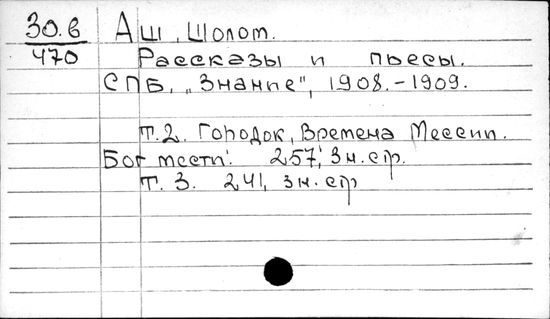 30.6 Аш, Шолом.
470 Рассказы и пьесы.
СПБ, „Знание", 1908.-1909.
Т.2. Городок, Времена Мессии.
Бог мести. 257, 3н.стр.
Т. 3. 241, 3н. стр